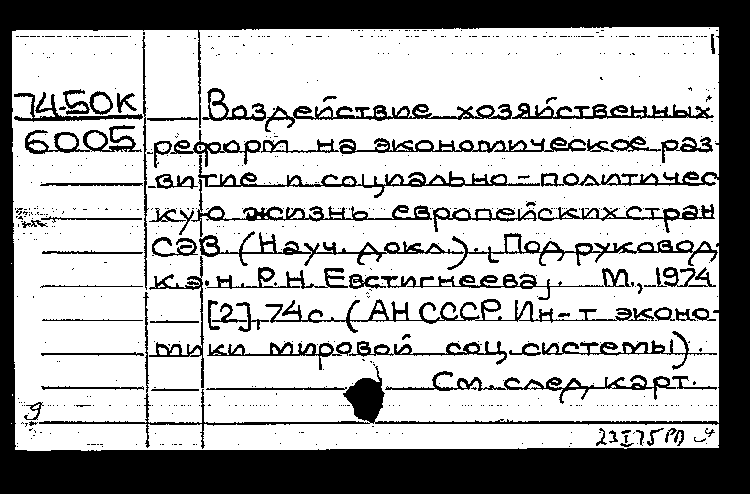 74-50К Воздействие хозяйственных
6005 реформ на экономическое раз-
витие и социально-политичес-
кую жизнь европейских стран
СЭВ. (Науч. докл.). [Под руковод.
к.э.н. Р.Н. Евстигнеева]. М., 1974
[2], 74с. (АН СССР. Ин-т эконо-
мики мировой соц. системы).
См. след. карт.
9
23 I 75